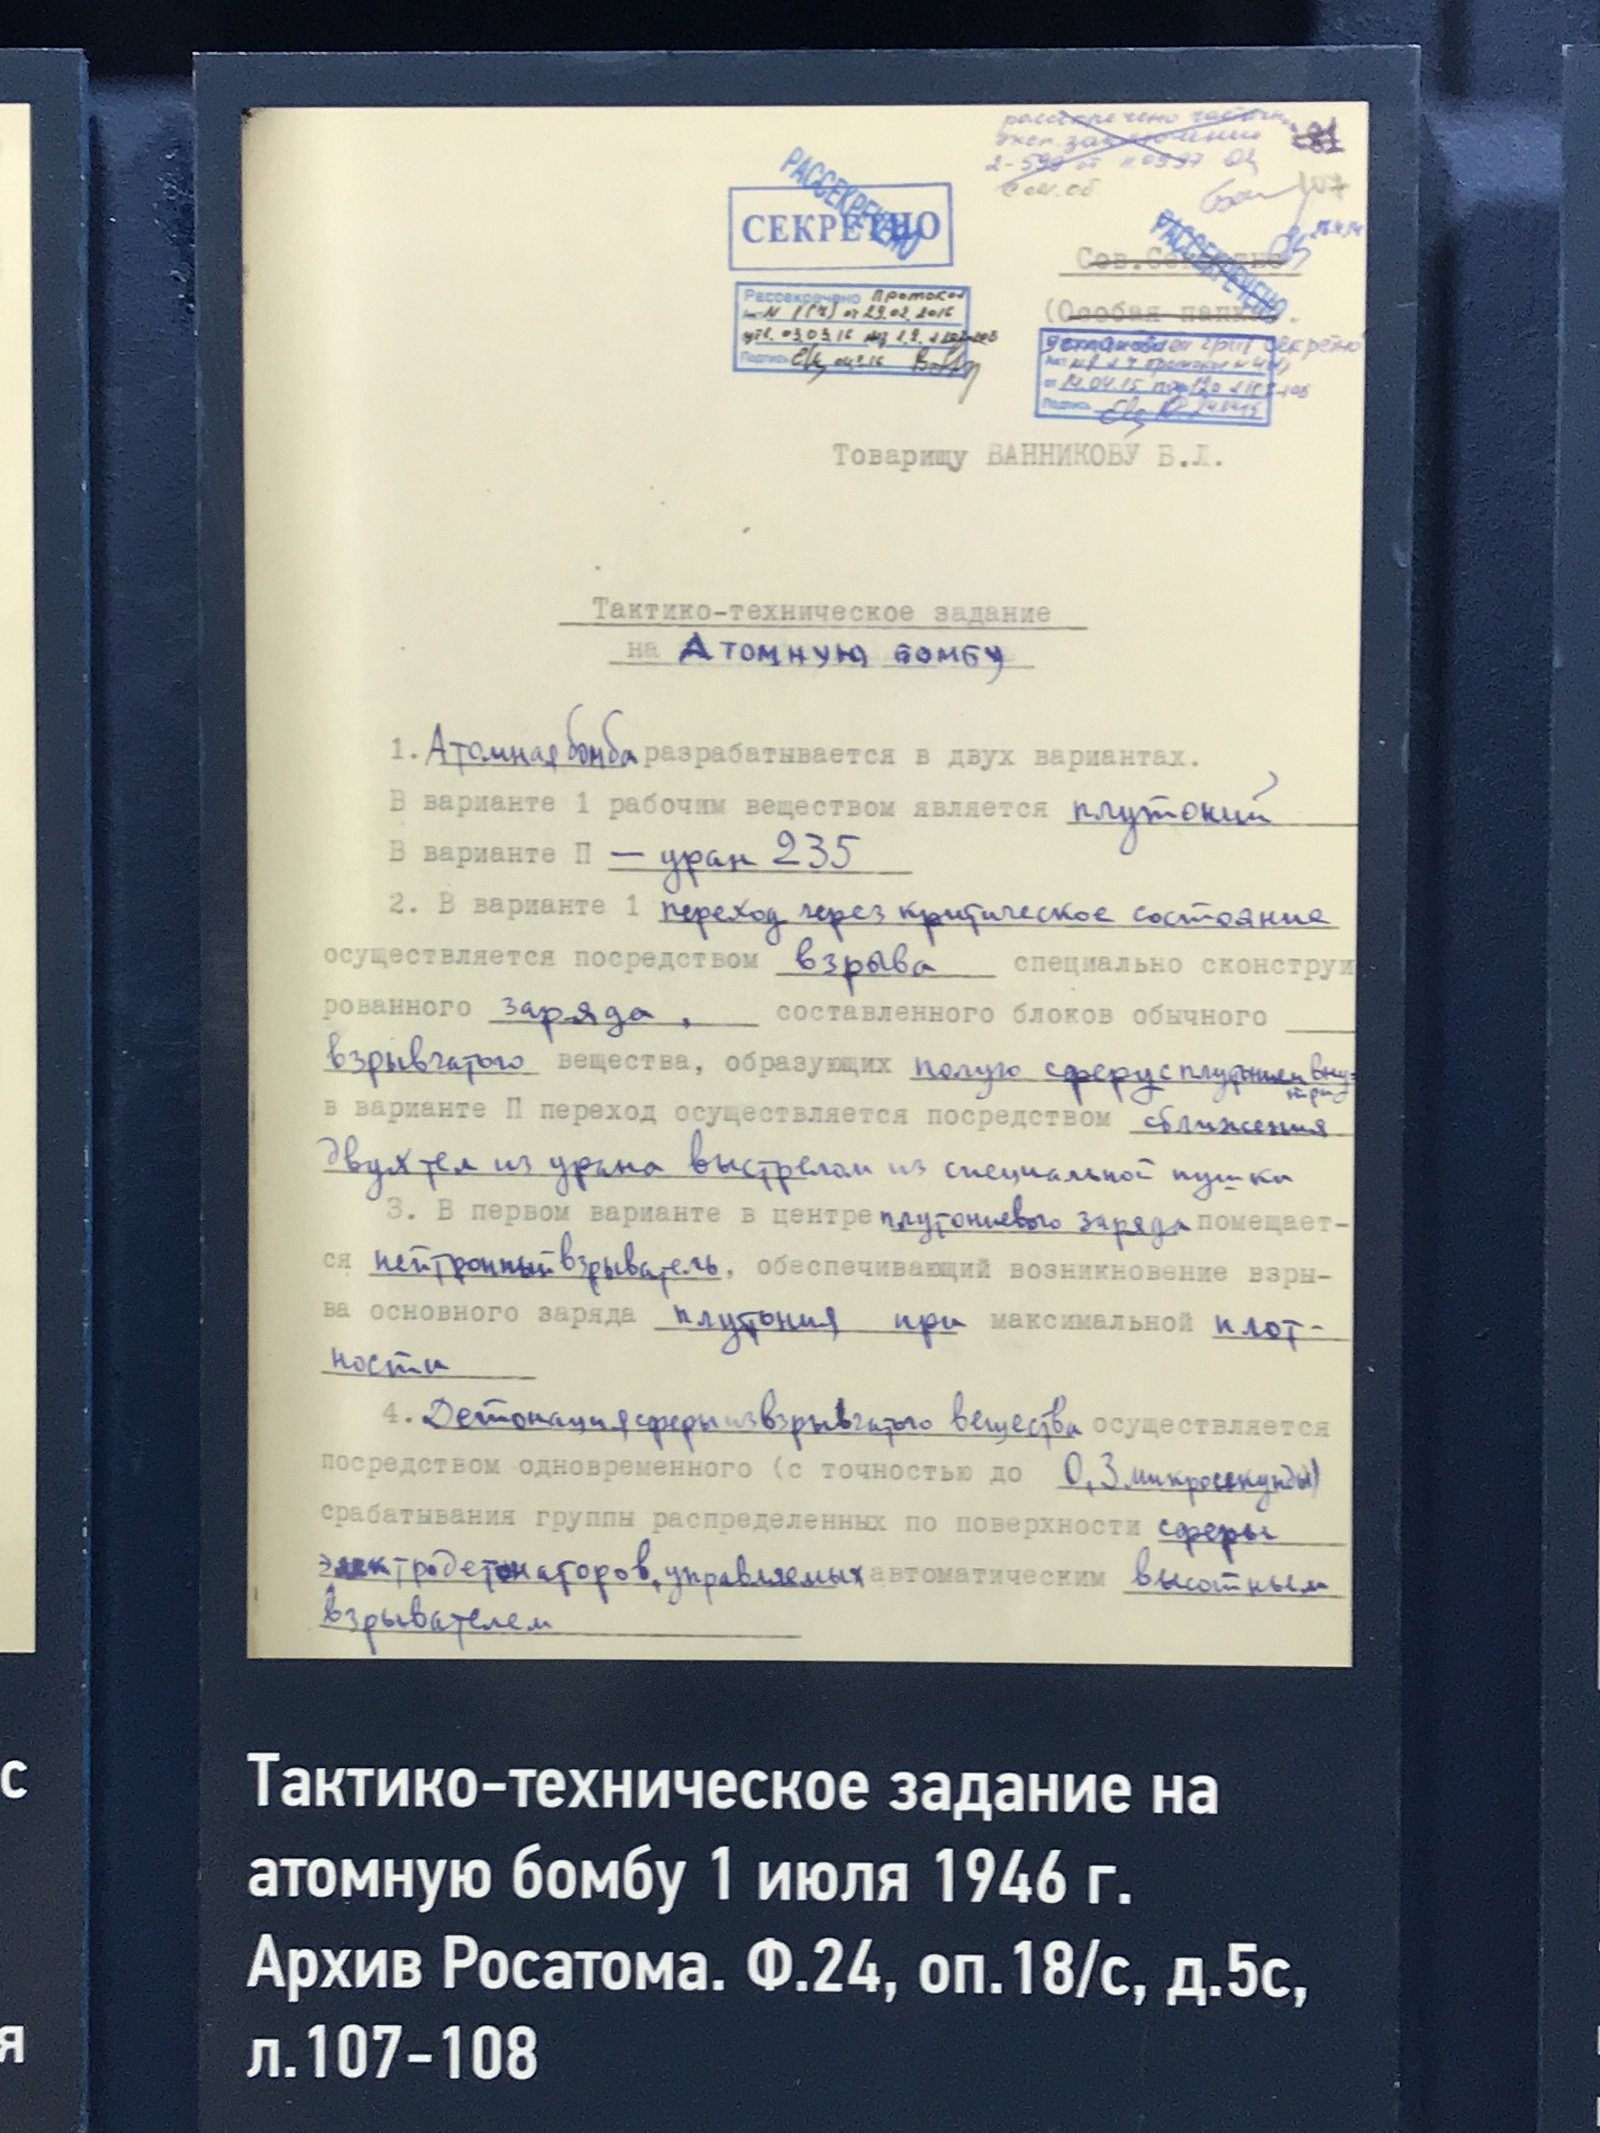 рассекречено частичн
эксп. заключении
107
РАССЕКРЕЧЕНО
СЕКРЕТНО
РАССЕКРЕЧЕНО
Сов.Секретно
(Особая папка).
Рассекречено Протокол
Акт N 1(4) от 29.02.2016
утв. 03.03.16
Подпись
Установлен гриф секретно
Акт
от 14.04.15
Подпись
Товарищу ВАННИКОВУ Б.Л.
Тактико-техническое задание
на Атомную бомбу
1. Атомная бомба разрабатывается в двух вариантах.
В варианте 1 рабочим веществом является плутоний
В варианте П — уран 235
2. В варианте 1 переход через критическое состояние
осуществляется посредством взрыва специально сконструи
рованного заряда, составленного блоков обычного
взрывчатого вещества, образующих полую сферу с плутонием вну-
три
в варианте П переход осуществляется посредством сближения
двух тел из урана выстрелом из специальной пушки
3. В первом варианте в центре плутониевого заряда помещает-
ся нейтронный взрыватель, обеспечивающий возникновение взры-
ва основного заряда плутония при максимальной плот-
ности
4. Детонация сферы из взрывчатого вещества осуществляется
посредством одновременного (с точностью до 0,3 микросекунды)
срабатывания группы распределенных по поверхности сферы
электродетонаторов, управляемых автоматическим высотным
взрывателем
Тактико-техническое задание на
атомную бомбу 1 июля 1946 г.
Архив Росатома. Ф.24, оп.18/с, д.5с,
л.107-108
с
я